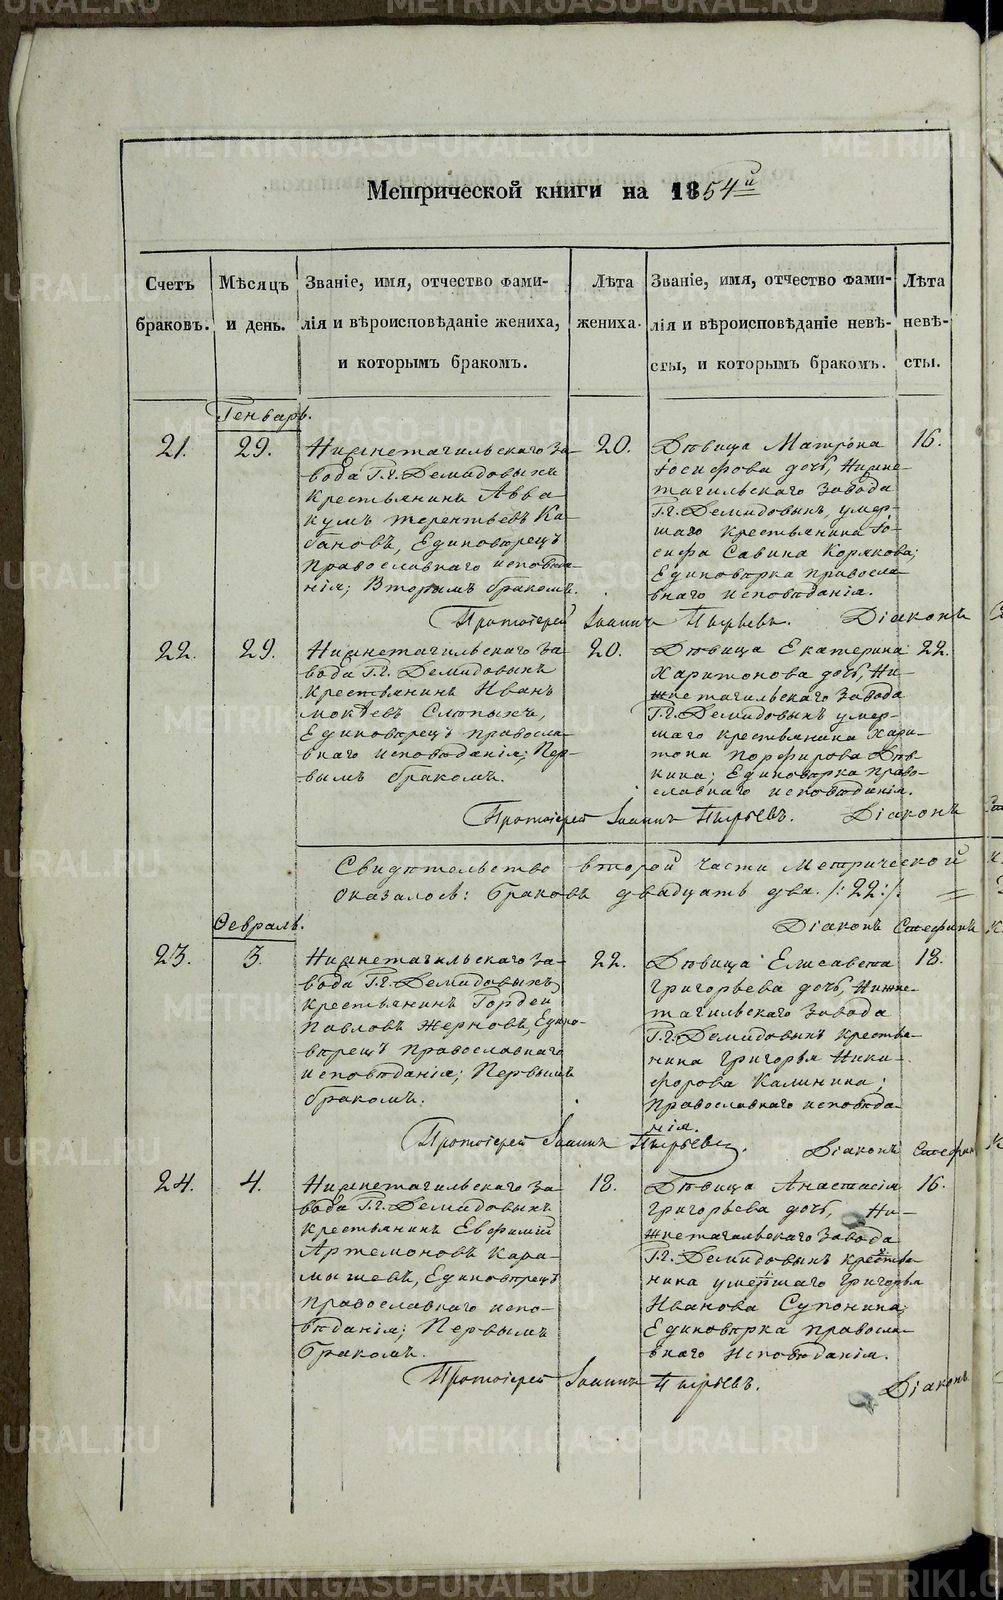 Метрической книги на 1854й
Счетъ браковъ.
Мѣсяцъ и день.
Званіе, имя, отчество фами-
лія и вѣроисповѣданіе жениха,
и которымъ бракомъ.
Лѣта жениха.
Званіе, имя, отчество фами-
лія и вѣроисповѣданіе невѣ-
сты, и которымъ бракомъ.
Лѣта невѣ-
сты.
Генварь.
21.
29.
Нижнетагильскаго за-
вода Г.г. Демидовыхъ
крестьянинъ Авва-
кумъ Терентьевъ Ка-
бановъ, Единовѣрецъ
Православнаго исповѣда-
нія; Вторымъ бракомъ.
20.
Дѣвица Матрона
Іосифова дочь, Нижне-
тагильскаго завода
Г.г. Демидовыхъ, умер-
шаго крестьянина Іо-
сифа Савина Корякова;
Единовѣрка правосла-
внаго исповѣданія.
16.
Протоіерей Іоаннъ Пырьевъ. Діаконъ
22.
29.
Нижнетагильскаго за-
вода Г.г. Демидовыхъ
крестьянинъ Иванъ
Мокѣевъ Слѣпыхъ,
Единовѣрецъ правосла-
внаго исповѣданія; Пер-
вымъ бракомъ.
20.
Дѣвица Екатерина
Харитонова дочь, Ни-
жнетагильскаго завода
Г.г. Демидовыхъ умер-
шаго крестьянина Хари-
тона Порфирова Дѣв-
кина; Единовѣрка право-
славнаго исповѣданія.
22.
Протоіерей Іоаннъ Пырьевъ. Діаконъ
Свидѣтельство второй части Метрической
оказалось: браковъ двадцать два /:22:/.
Діаконъ
Февраль.
23.
3.
Нижнетагильскаго за-
вода Г.г. Демидовыхъ
крестьянинъ Гордей
Павловъ Жерновъ, Едино-
вѣрецъ Православнаго
исповѣданія; Первымъ
бракомъ.
22.
Дѣвица Елисавета
Григорьева дочь, Нижне-
тагильскаго завода
Г.г. Демидовыхъ крестья-
нина Григорья Ники-
форова Калинина;
Православнаго исповѣда-
нія.
18.
Протоіерей Іоаннъ Пырьевъ. Діаконъ
24.
4.
Нижнетагильскаго за-
вода Г.г. Демидовыхъ
крестьянинъ Евфимій
Артемоновъ Кара-
мышевъ, Единовѣрецъ
Православнаго испо-
вѣданія; Первымъ
бракомъ.
18.
Дѣвица Анастасія
Григорьева дочь, Ни-
жнетагильскаго завода
Г.г. Демидовыхъ крестья-
нина умершаго Григорья
Иванова Супонина;
Единовѣрка правосла-
внаго Исповѣданія.
16.
Протоіерей Іоаннъ Пырьевъ. Діаконъ
METRIKI.GASO-URAL.RU